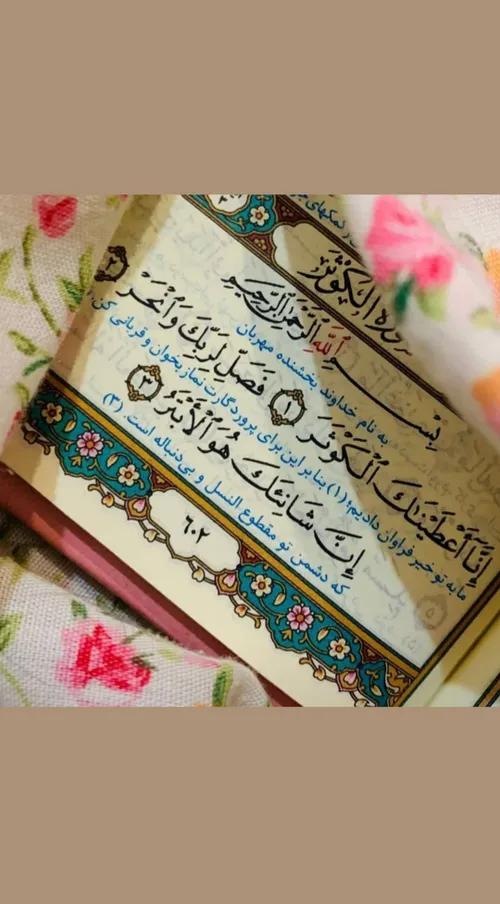 سورة الكوثر
بِسْمِ اللَّهِ الرَّحْمَٰنِ الرَّحِيمِ
به نام خداوند بخشنده مهربان
إِنَّآ أَعْطَيْنَٰكَ ٱلْكَوْثَرَ ﴿١﴾ فَصَلِّ لِرَبِّكَ وَٱنْحَرْ ﴿٢﴾
ما به تو خیر فراوان دادیم؛ (۱) بنابر این برای پروردگارت نماز بخوان و قربانی کن.
إِنَّ شَانِئَكَ هُوَ ٱلْأَبْتَرُ ﴿٣﴾
که دشمن تو مقطوع النسل و بی‌دنباله است. (۳)
٦٠٢